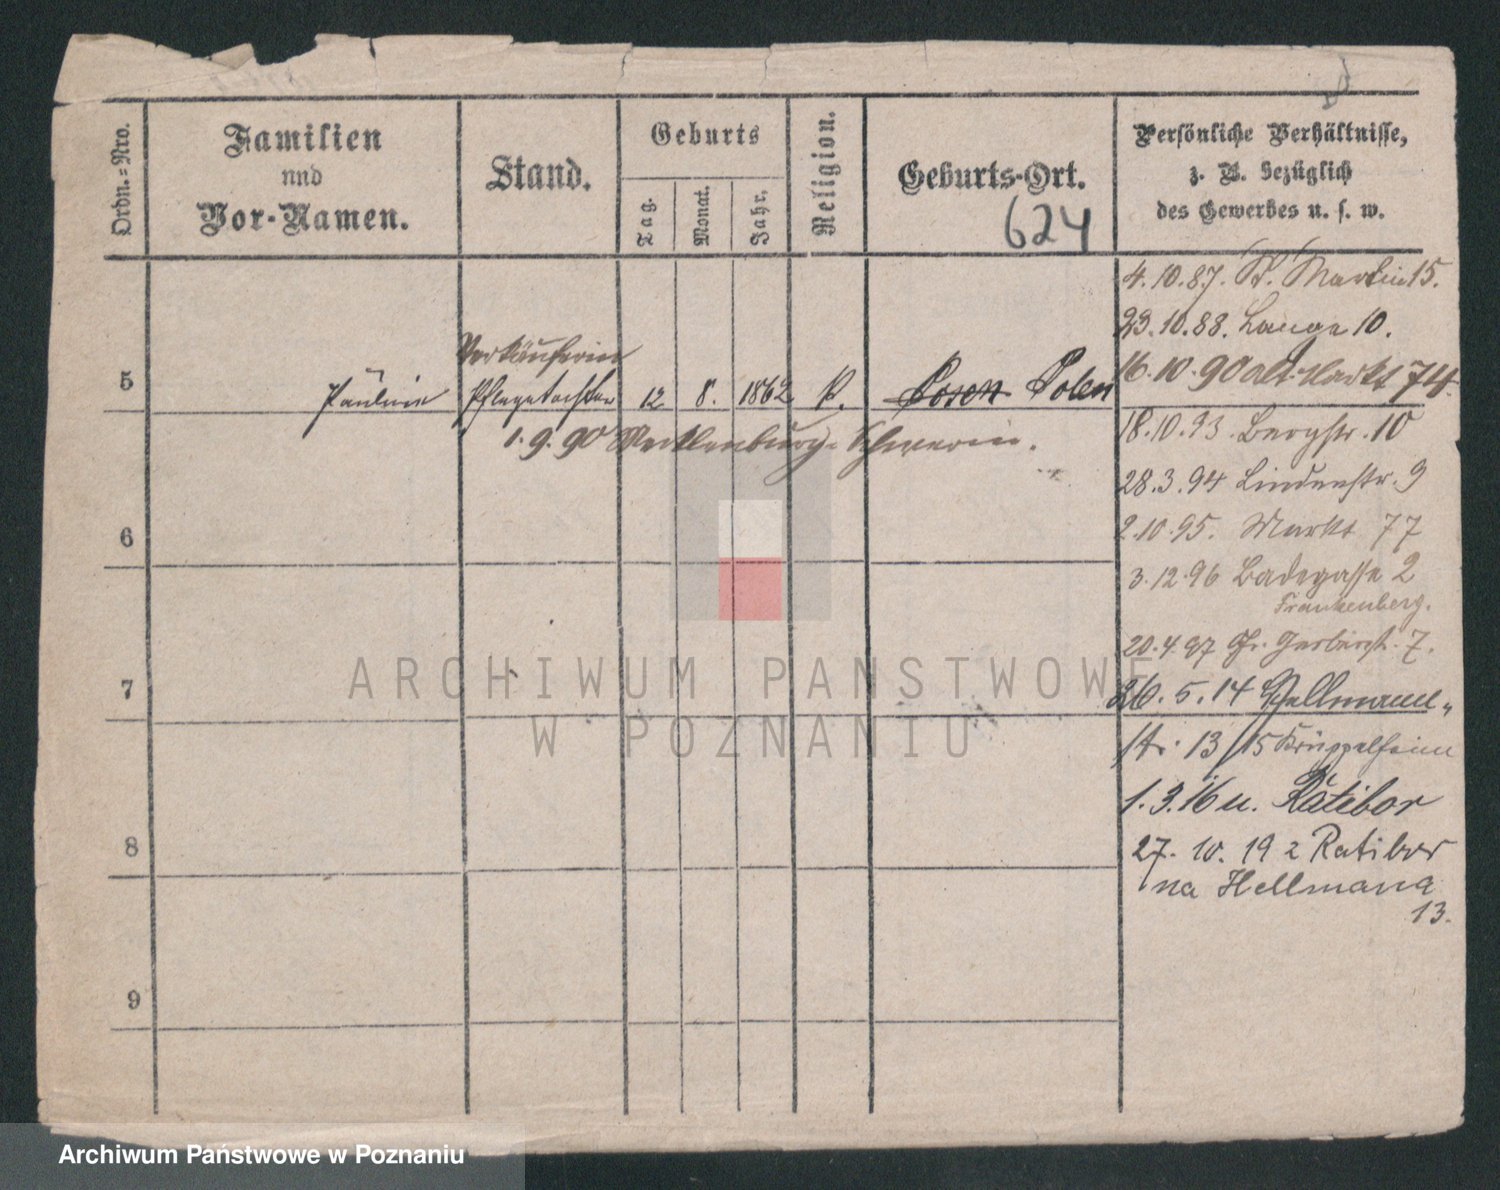 Ordn.=Nro.
Familien
und
Vor-Namen.
Stand.
Geburts
Tag.
Monat.
Jahr.
Religion.
Geburts-Ort.
624
Persönliche Verhältnisse,
z. B. bezüglich
des Gewerbes u. s. w.
4.10.87. St. Martin 15.
23.10.88. Lange 10.
16.10.90 Alt Markt 74.
Verkäuferin
5 Pauline Pflegetochter 12 8. 1862 K. Posen Polen
1.9.90 Mecklenburg-Schwerin.
18.10.93. Bergstr. 10
28.3.94 Lindenstr. 9
2.10.95. Markt 77
3.12.96 Badegasse 2
Frankenberg.
20.4.97 Gr. Gerberstr. 7.
26.5.14 Hellmann-
str. 13 /15 Krüppelheim
1.3.16 u. Ratibor
27.10.19 z Ratibor
na Hellmana
13.
6
7
8
9
ARCHIWUM PAŃSTWOWE
W POZNANIU
Archiwum Państwowe w Poznaniu